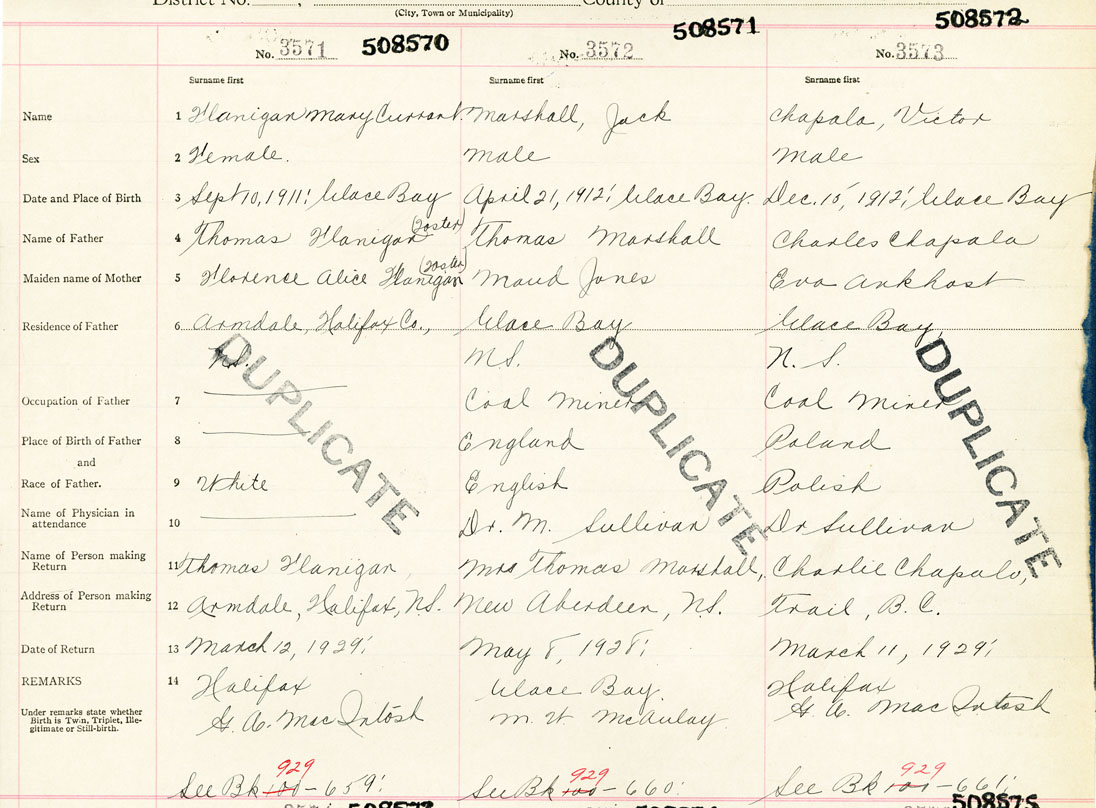 District No.      ,      County of
(City, Town or Municipality)
No. 3571 508570 No. 3572 508571 No. 3573 508572
Surname first Surname first Surname first
Name 1 Flanigan Mary Currant. Marshall, Jack Chapala, Victor
Sex 2 Female. Male Male
Date and Place of Birth 3 Sept 10, 1911; Glace Bay April 21, 1912; Glace Bay. Dec. 15, 1912; Glace Bay
Name of Father 4 Thomas Flanigan (Foster) Thomas Marshall Charles Chapala
Maiden name of Mother 5 Florence Alice Flanigan (Foster) Maud Jones Eva Arkhast
Residence of Father 6 Armdale, Halifax Co., Glace Bay Glace Bay,
N.S. N.S. N. S.
Occupation of Father 7 Coal Miner Coal Miner
Place of Birth of Father 8 England Poland
and
Race of Father. 9 White English Polish
Name of Physician in
attendance 10 Dr. M. Sullivan Dr Sullivan
Name of Person making
Return 11 Thomas Flanigan, Mrs Thomas Marshall, Charlie Chapalo,
Address of Person making
Return 12 Armdale, Halifax, N.S. New Aberdeen, N.S. Trail, B.C.
Date of Return 13 March 12, 1929; May 8, 1928; March 11, 1929;
REMARKS 14 Halifax Glace Bay. Halifax
Under remarks state whether
Birth is Twin, Triplet, Ille-
gitimate or Still-birth.
G. A. MacIntosh McAulay. G. A. MacIntosh
DUPLICATE DUPLICATE DUPLICATE
929 929 929
See Bk 100-659; See Bk 100-660; See Bk 101-661;
508575